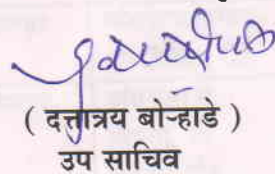 ( दत्तात्रय बोऱ्हाडे )
उप साचिव